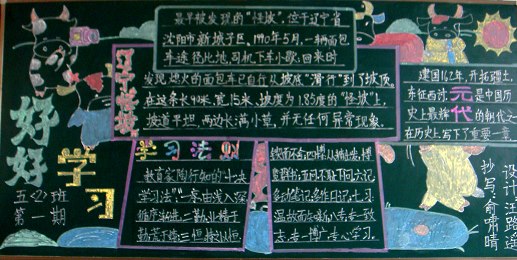 最早被发现的“怪坡”,位于辽宁省
沈阳市新城子区。1990年5月,一辆面包
车途径此地,司机下车小歇。回来时
发现熄火的面包车已自行从坡底“滑行”到了坡顶。
在这条长90米,宽15米,坡度为1.85度的“怪坡”上,
坡道平坦,两边长满小草,并无任何异常现象。
辽宁怪坡
建国162年,开拓疆土,
东征西讨。元是中国历
史上最辉代的朝代之一
在历史上写下了重要一章
好好学习
五<2>班
第一期
学习法则
教育家陶行知的“十决
学习法”:一拿由浅入深
循序渐进;二勤业精于
勤荒于嬉;三恒持之以恒
锲而不舍;四博
五问不耻下问六记
多动笔记,多作日记;七习
温故而知新;八专专一致
专心学习。
设计:汪路遥
抄写:俞常晴